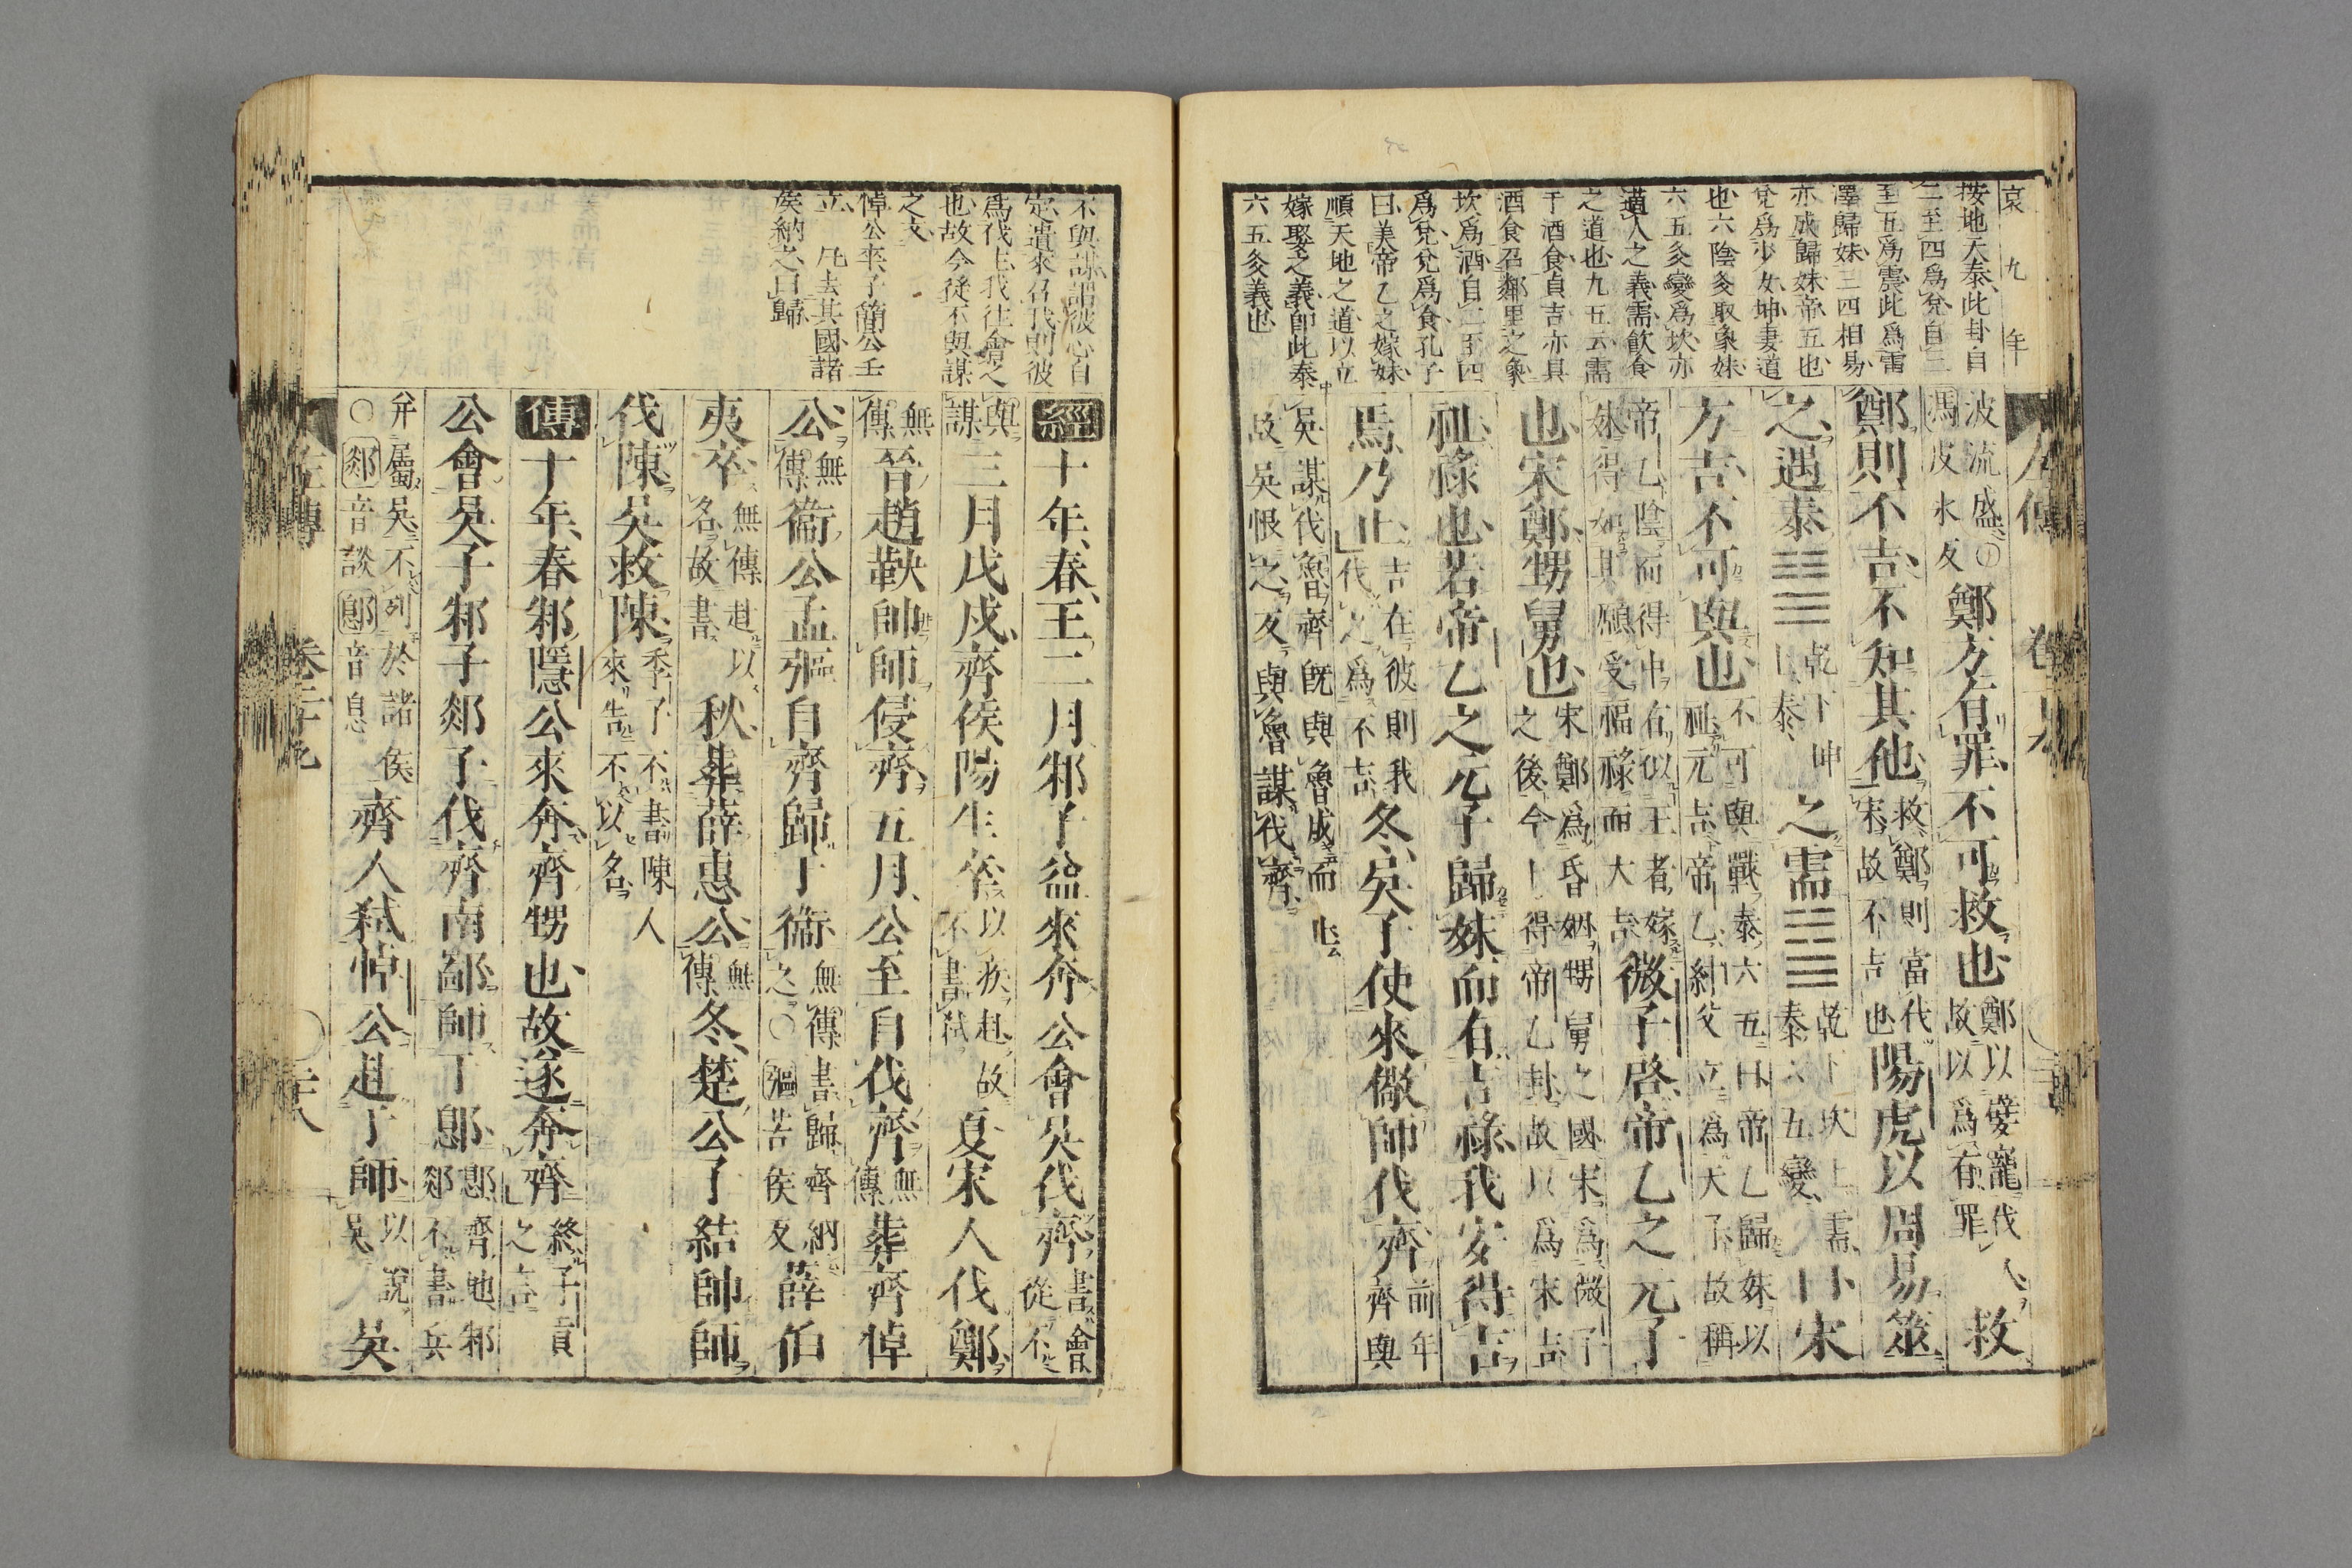 哀九年
按地天泰此卦自
二至四爲兌自三
至五爲震此爲雷
澤歸妹三四相易
亦成歸妹帝五也
兌爲少女坤妻道
也六陰爻取象妹
六五爻變爲坎亦
之道也九五云需
于酒食貞吉亦具
酒食召鄰里之象
坎爲酒自二至四
爲兌兌爲食孔子
曰美帝乙之嫁妹
順天地之道以立
嫁娶之義卽此泰
六五爻義也
波流盛〇
馮皮氷反
鄭方有罪不可救也
鄭以嬖寵伐人
故以爲有罪
救
鄭則不吉不知其他
救鄭則當伐
宋故不吉也
陽虎以周易筮
之遇泰䷊
乾下坤
上泰
之需䷄
乾下坎上需
泰六五變
曰宋
方吉不可與也
不可與戰泰六五曰帝乙歸妹以
祉元吉帝乙紂父立爲天子故稱
帝乙陰而得中有似王者嫁
妹得如其願受福祿而大吉
微子啓帝乙之元子
也宋鄭甥舅也
宋鄭爲昏姻甥舅之國宋爲微子
之後今卜得帝乙卦故以爲宋吉
祉祿也若帝乙之元子歸妹而有吉祿我安得吉
焉乃止
吉在彼則我
伐之爲不吉
冬吳子使來儆師伐齊
前年
齊與
吳謀伐魯齊旣與魯成而止
故吳恨之反與魯謀伐齊
不與謀謂彼心自
定遣來召我則彼
爲伐主我往會之
也故今從不與謀
之文
悼公卒子簡公壬
立 凡去其國諸
侯納之曰歸
經十年春王二月邾子益來奔公會吳伐齊
書會
從不
與
謀
三月戊戌齊侯陽生卒
以疾赴故
不書弒
夏宋人伐鄭
無
傳
晉趙鞅帥師侵齊五月公至自伐齊
無
傳
葬齊悼
公
無
傳
衞公孟彄自齊歸于衞
無傳書歸齊納
之〇彄苦侯反
薛伯
夷卒
無傳赴以
名故書
秋葬薛惠公
無
傳
冬楚公子結帥師
伐陳吳救陳
季子不書陳人
來告不以名
傳十年春邾隱公來奔齊甥也故遂奔齊
終子貢
之言
公會吳子邾子郯子伐齊南鄙師于鄎
鄎齊地邾
郯不書兵
并屬吳不列於諸侯
〇郯音談鄎音息
齊人弒悼公赴于師
以說
吳
吳
左傳 卷二十九 二十八